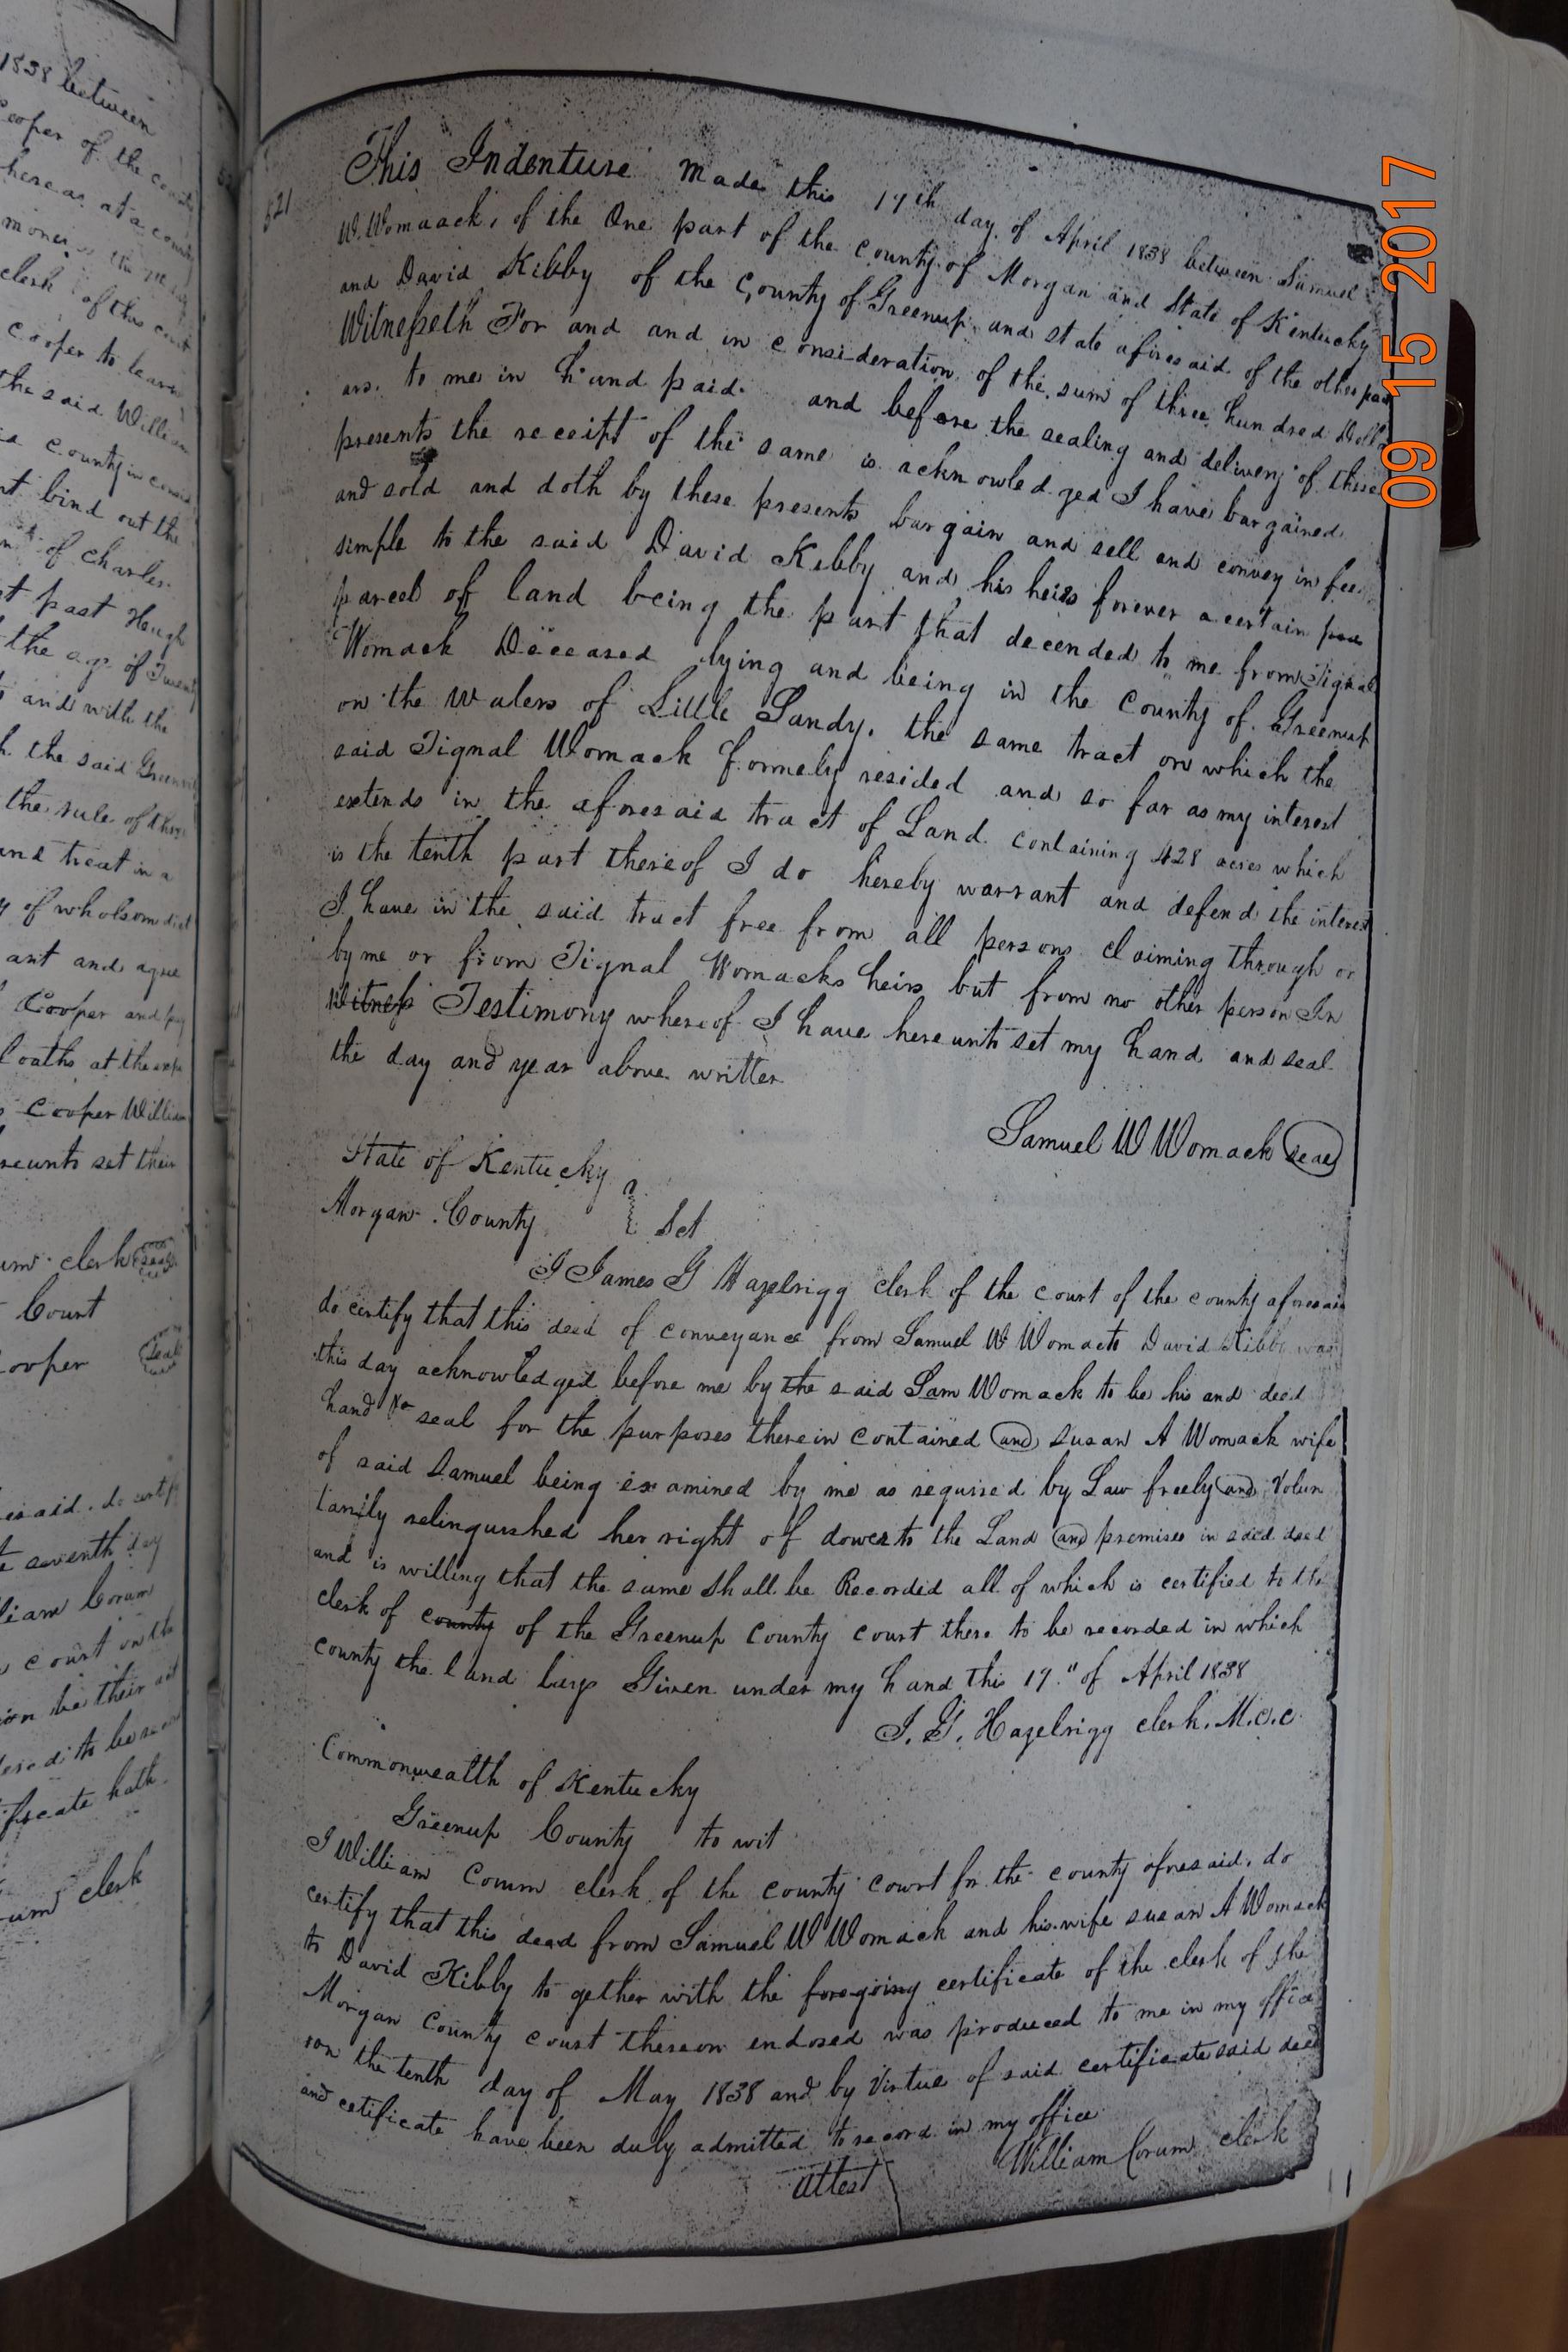 1838 between
Cooper of the county
whereas at a county
clerk of this court
Cooper to learn
the said William
county in
bind out the
of Charles
past Hugh
the age of Twenty
and with the
the said
the rule of
and treat in a
of wholsom diet
ant and agree
Cooper and pay
Cooper William
set their
clerk seal
Court
ooper seal
said. do certify
seventh day
Corum
court on the
be their act
to be
ificate hath
um clerk
521
This Indenture made this 17th day of April 1838 between Samuel
W. Womaack, of the One part of the county of Morgan and State of Kentucky
and David Kibby of the County of Greenup and state aforesaid of the other part
Witnesseth For and and in consideration of the sum of three hundred Doll
ars. to me in hand paid. and before the sealing and delivery of these
presents the receipt of the same is acknowledged I have bargained
and sold and doth by these presents bargain and sell and convey in fee
simple to the said David Kibby and his heirs forever a certain
parcel of land being the part that decended to me from Tignal
Womack Deceased lying and being in the County of Greenup
on the waters of Little Sandy. the same tract on which the
said Tignal Womack formely resided and so far as my interest
extends in the aforesaid tract of Land containing 428 acres which
is the tenth part thereof I do hereby warrant and defend the interest
I have in the said tract free from all persons claiming through or
by me or from Tignal Womacks heirs but from no other person In
Witness Testimony whereof I have hereunto set my hand and seal
the day and year above written
Samuel W Womack seal
State of Kentucky
Morgan County } Sct
I James G Hazelrigg clerk of the court of the county aforesaid
do certify that this deed of conveyance from Samuel W Womack to David Kibby was
this day acknowledged before me by the said Sam Womack to be his and deed
hand & seal for the purposes therein contained and Susan A Womack wife
of said Samuel being examined by me as required by Law freely and Volun
tarily relinquished her right of dower to the Land and premises in said deed
and is willing that the same shall be Recorded all of which is certified to the
clerk of county of the Greenup County court there to be recorded in which
county the land lays Given under my hand this 17" of April 1838
J. G. Hazelrigg clerk. M.C.C
Commonwealth of Kentucky
Greenup County to wit
I William Corum clerk of the county court for the county aforesaid. do
certify that this deed from Samuel W Womack and his wife susan A Womack
to David Kibby to gether with the foregoing certificate of the clerk of the
Morgan County court thereon endosed was produced to me in my office
on the tenth day of May 1838 and by Virtue of said certificate said deed
and cetificate have been duly admitted to record in my office
Attest William Corum clerk
09 15 2017